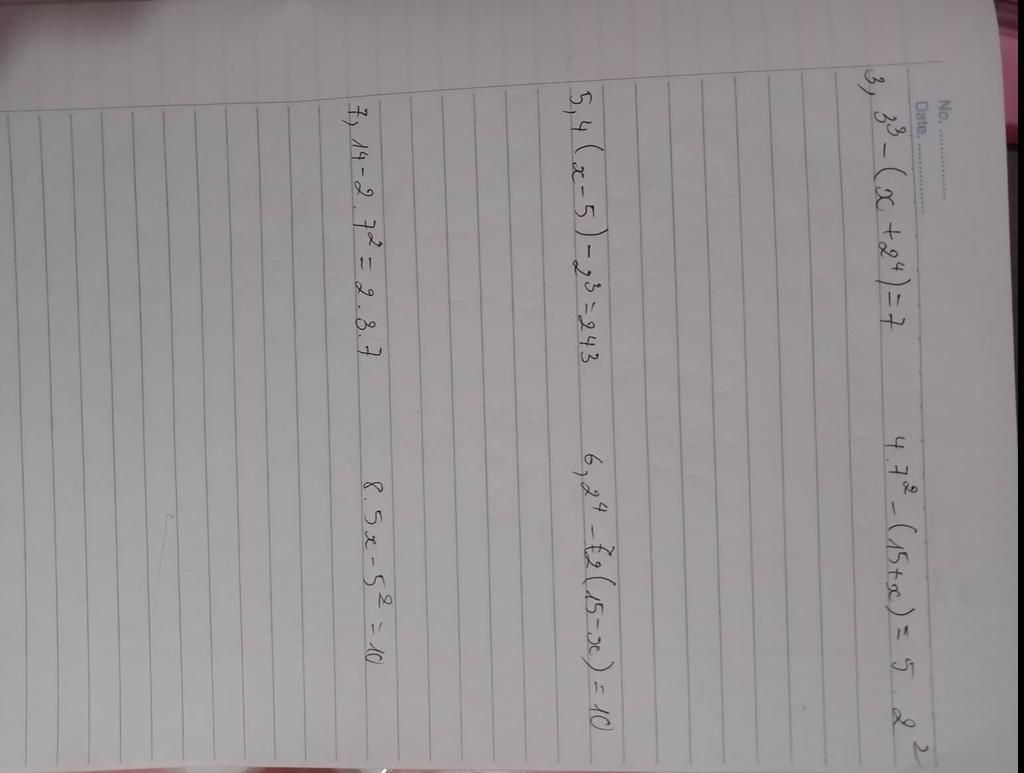 No. ................
Date. ................
3, 3³ - (x + 2⁴) = 7 4. 7² - (15 + x) = 5 . 2²
5, 4 (x - 5) - 2³ = 243 6, 2⁴ - 2 (15 - x) = 10
7, 14 - 2 . 7² = 2 . 3 . 7 8. 5x - 5² = 10